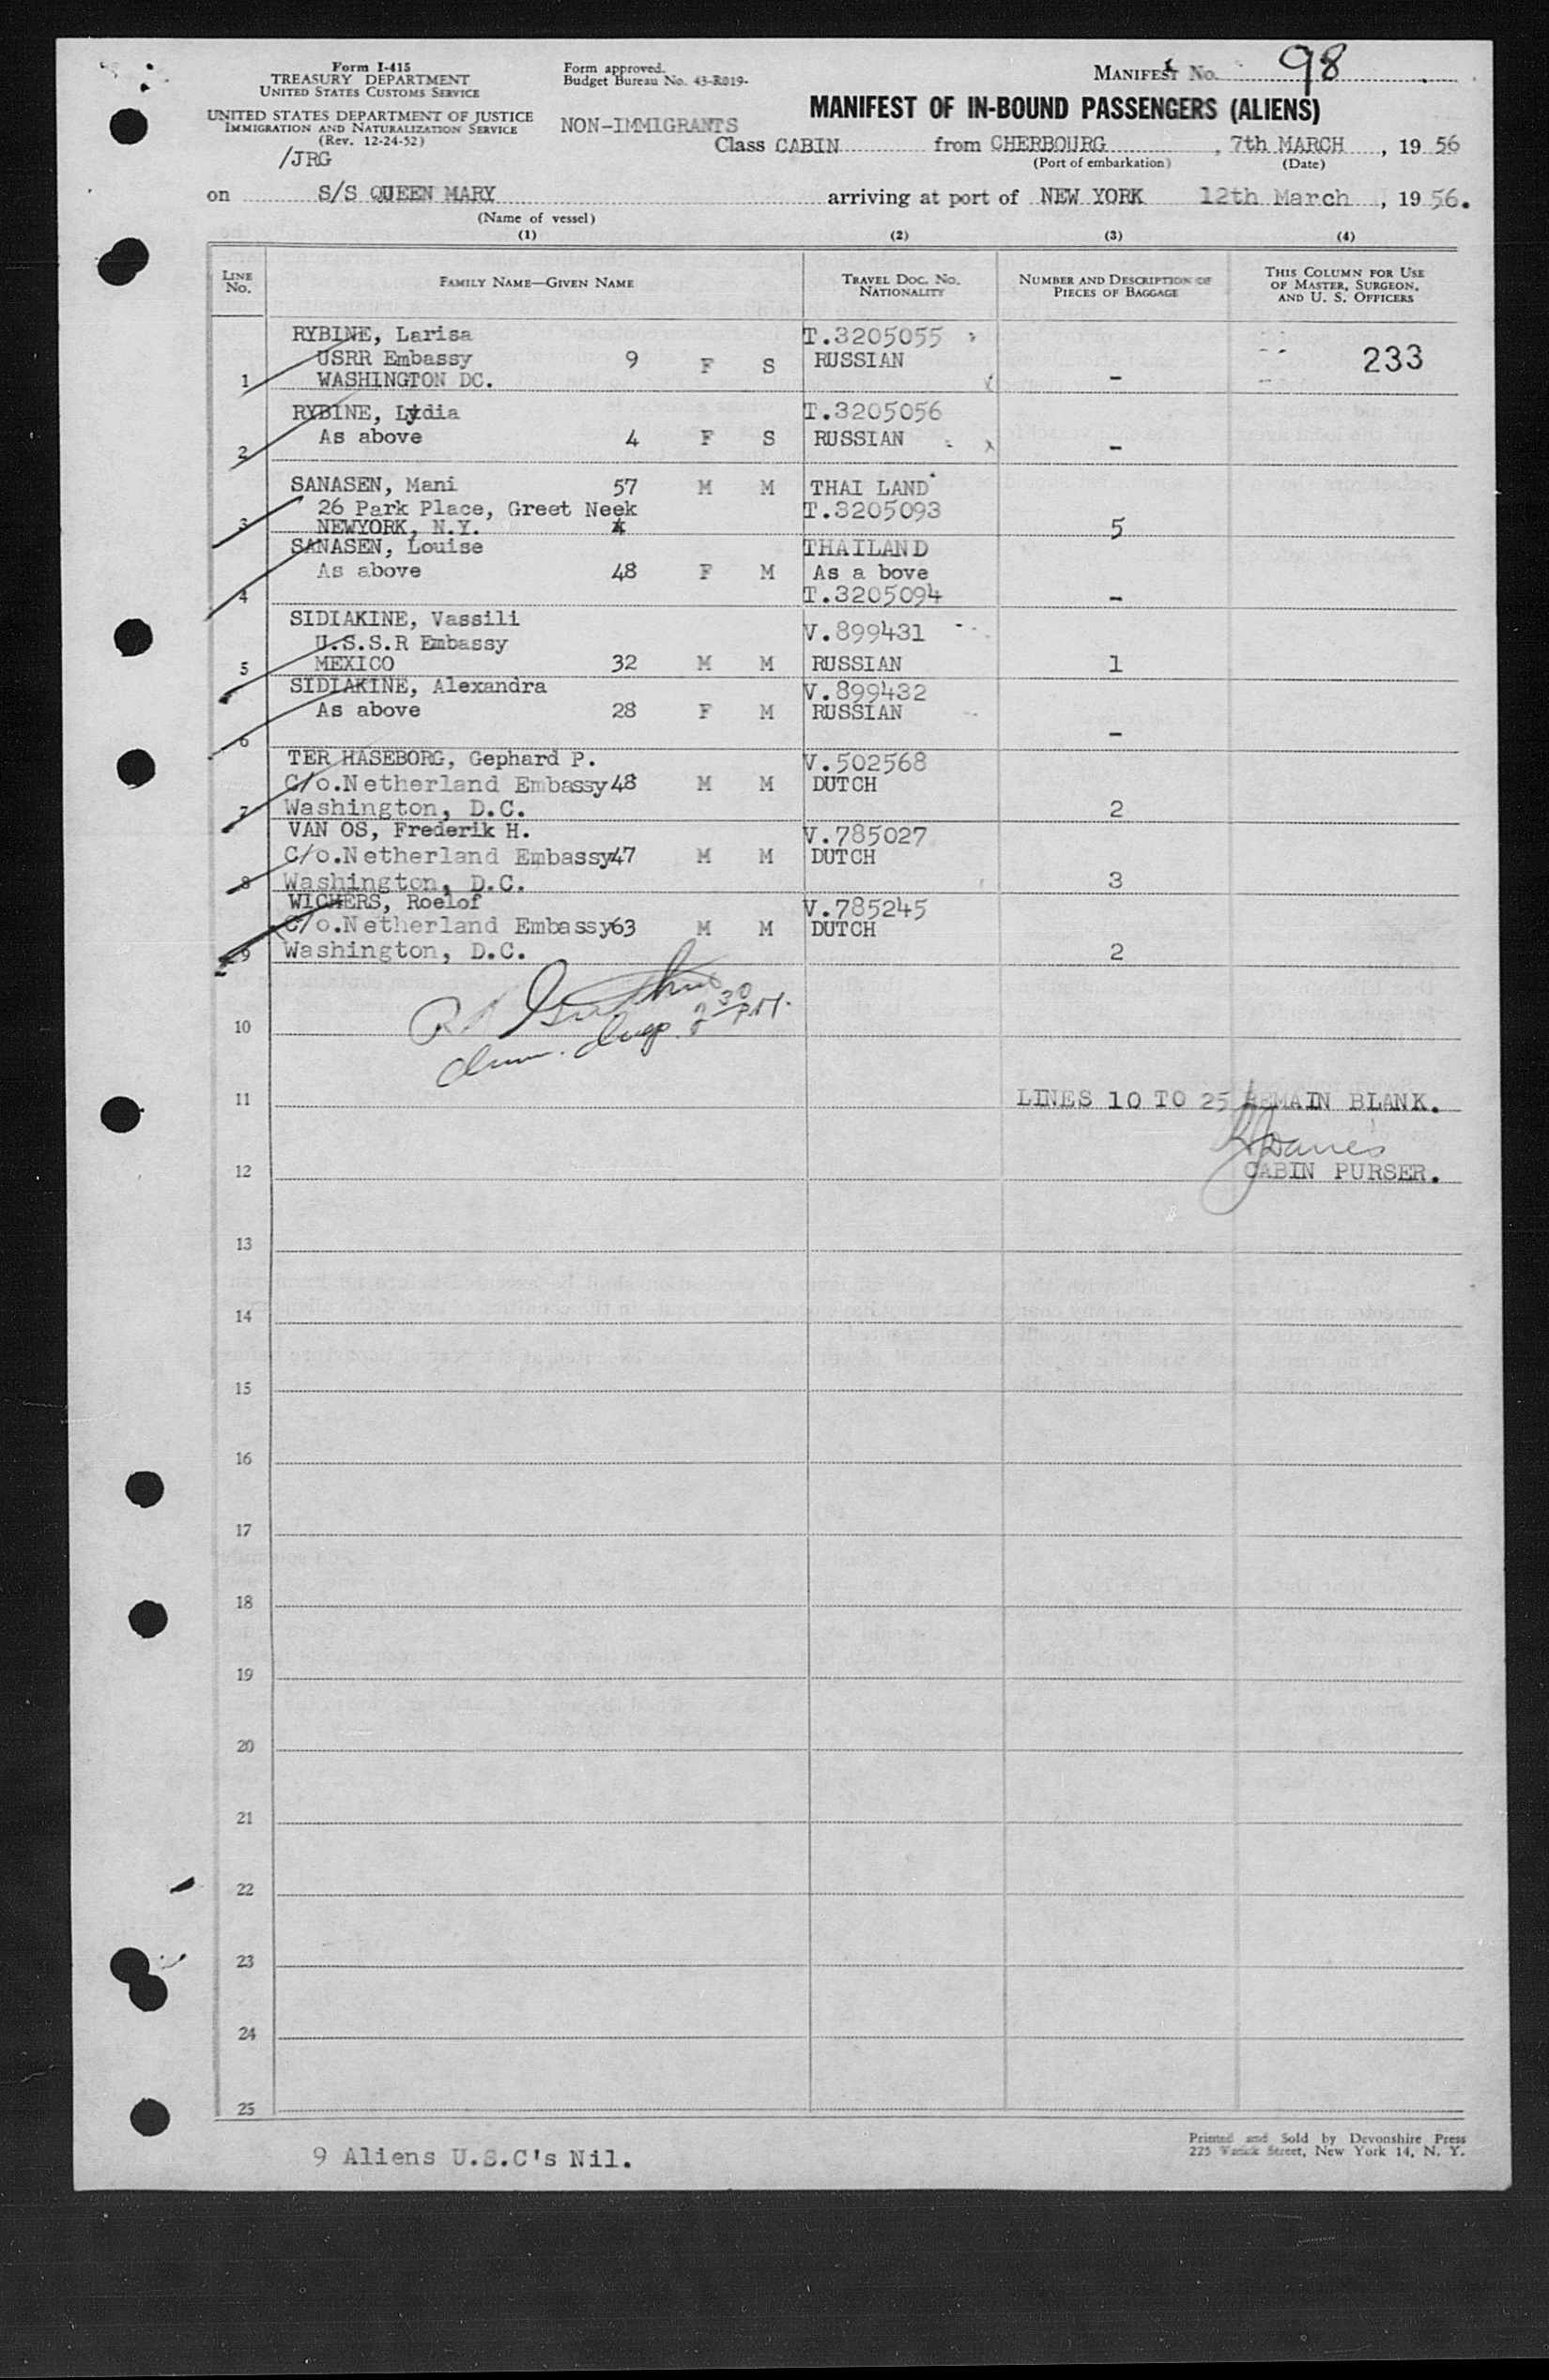 Form I-415
TREASURY DEPARTMENT
UNITED STATES CUSTOMS SERVICE
UNITED STATES DEPARTMENT OF JUSTICE
IMMIGRATION AND NATURALIZATION SERVICE
(Rev. 12-24-52)
/JRG
Form approved.
Budget Bureau No. 43-R019-
NON-IMMIGRANTS
MANIFEST No. 98
MANIFEST OF IN-BOUND PASSENGERS (ALIENS)
Class CABIN from CHERBOURG, 7th MARCH, 19 56
(Port of embarkation) (Date)
on S/S QUEEN MARY arriving at port of NEW YORK 12th March, 19 56.
(Name of vessel)
(1) (2) (3) (4)
LINE No. FAMILY NAME—GIVEN NAME TRAVEL DOC. No. NATIONALITY NUMBER AND DESCRIPTION OF PIECES OF BAGGAGE THIS COLUMN FOR USE OF MASTER, SURGEON, AND U. S. OFFICERS
RYBINE, Larisa T.3205055
USRR Embassy 9 F S RUSSIAN 233
1 WASHINGTON DC. -
RYBINE, Lydia T.3205056
As above 4 F S RUSSIAN
2 -
SANASEN, Mani 57 M M THAI LAND
26 Park Place, Greet Neek T.3205093
3 NEWYORK, N.Y. 5
SANASEN, Louise THAILAND
As above 48 F M As a bove
4 T.3205094 -
SIDIAKINE, Vassili V.899431
U.S.S.R Embassy
5 MEXICO 32 M M RUSSIAN 1
SIDIAKINE, Alexandra V.899432
As above 28 F M RUSSIAN
6 -
TER HASEBORG, Gephard P. V.502568
C/o.Netherland Embassy 48 M M DUTCH
7 Washington, D.C. 2
VAN OS, Frederik H. V.785027
C/o.Netherland Embassy 47 M M DUTCH
8 Washington, D.C. 3
WICHERS, Roelof V.785245
C/o.Netherland Embassy 63 M M DUTCH
9 Washington, D.C. 2
2 30 PM.
10
11 LINES 10 TO 25 REMAIN BLANK.
12 CABIN PURSER.
13
14
15
16
17
18
19
20
21
22
23
24
25
9 Aliens U.S.C's Nil.
Printed and Sold by Devonshire Press
225 Varick Street, New York 14, N. Y.